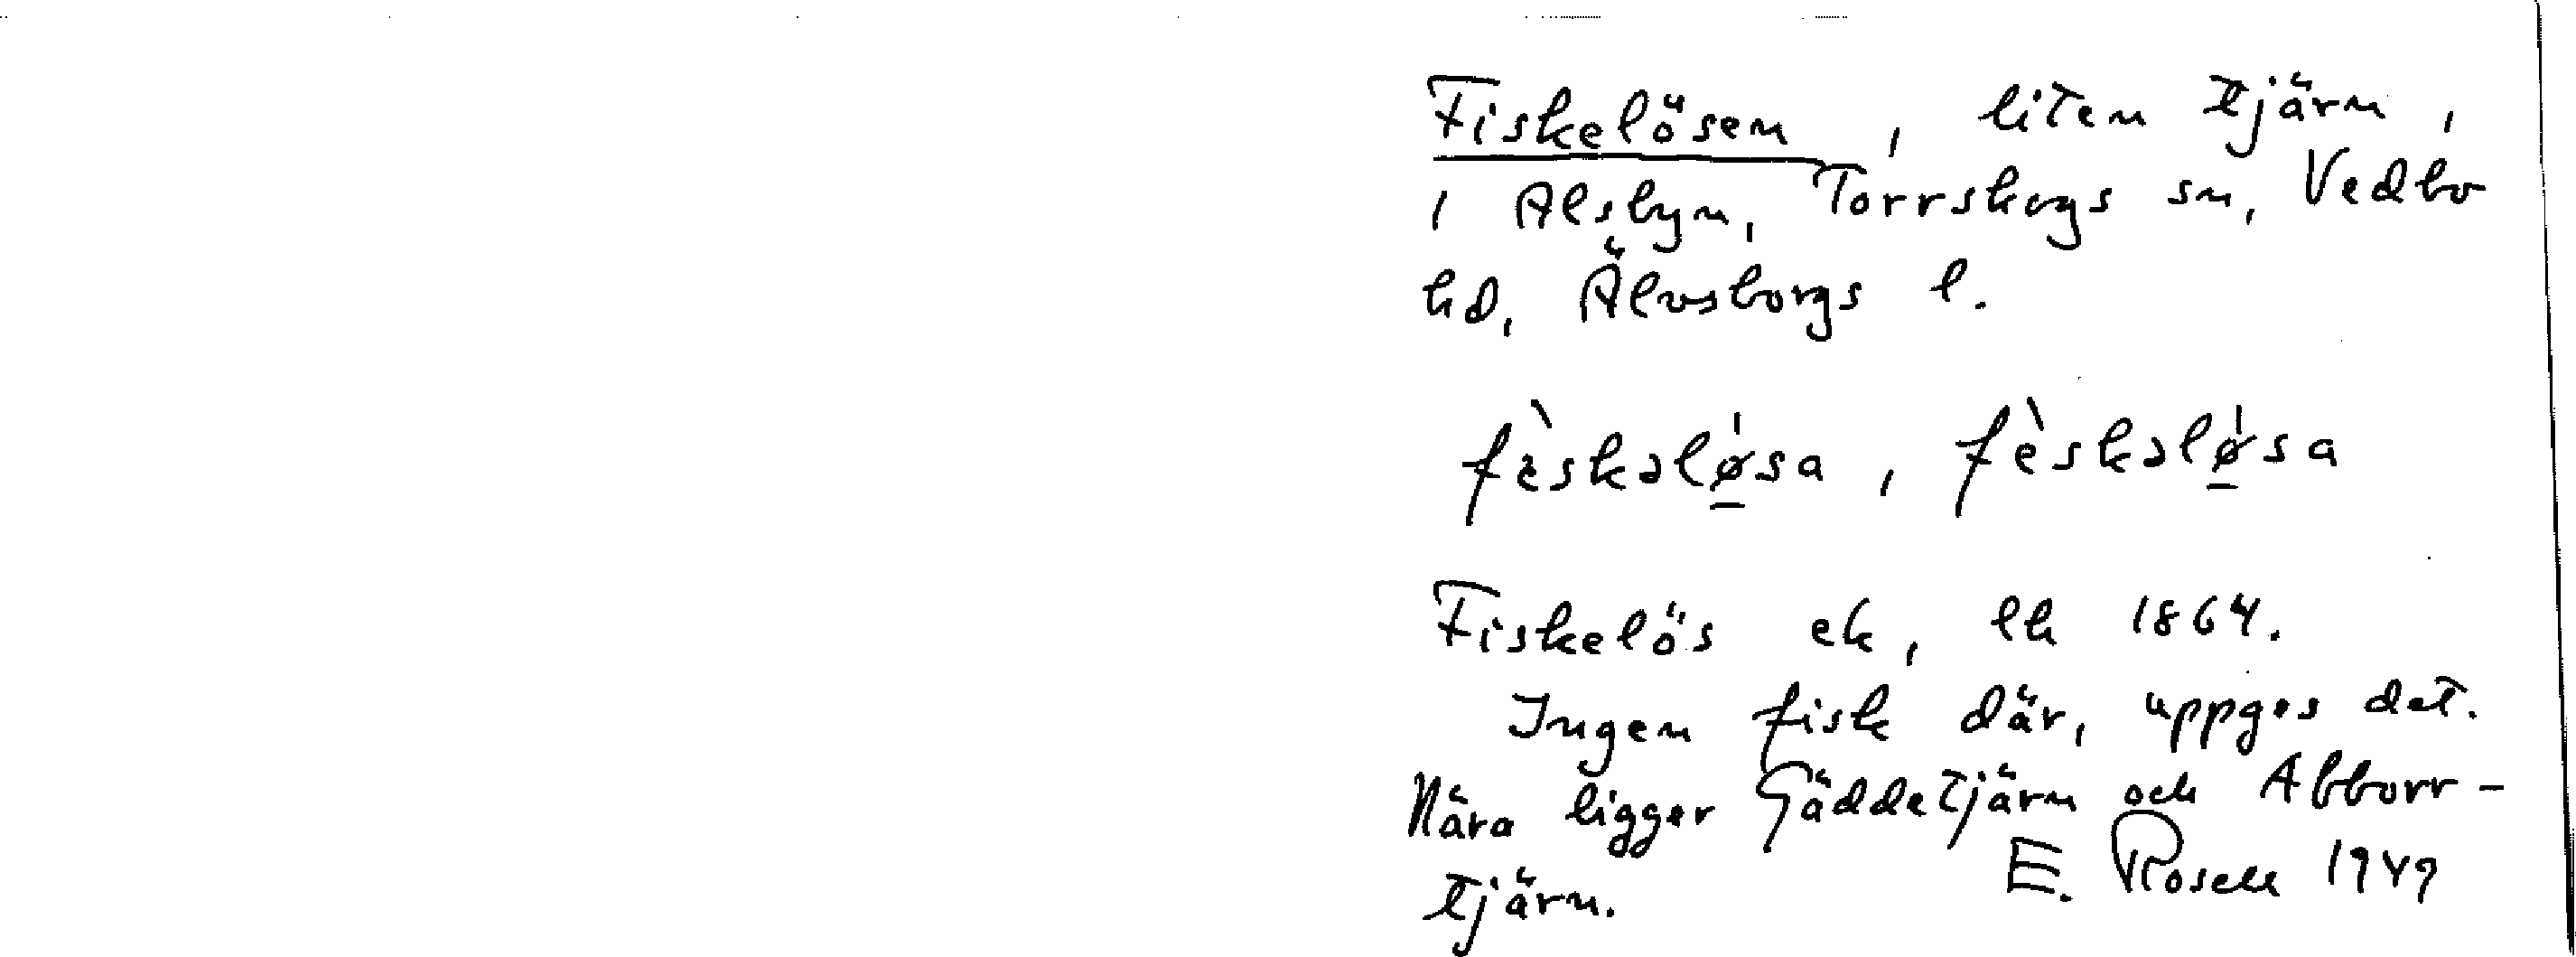 Fiskelösen, liten tjärn,
i Alsbyn, Torrskogs sn, Vedbo
hd, Älvsborgs l.
fèskəlǿ̱sa, fèskəlǿ̱sa
Fiskelös ek, lh 1864.
Ingen fisk där, uppges det.
Nära ligger Gäddetjärn och Abborr-
tjärn. E. Rosell 1949